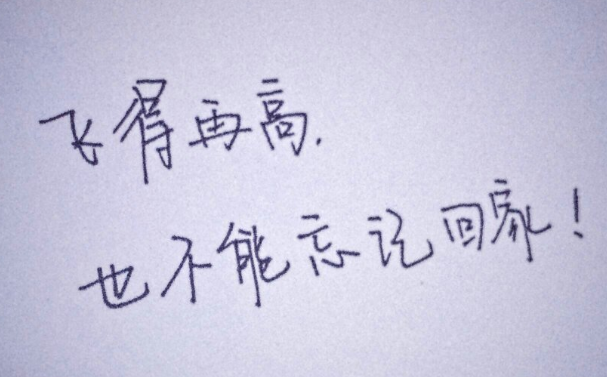 飞得再高.
也不能忘记回家!